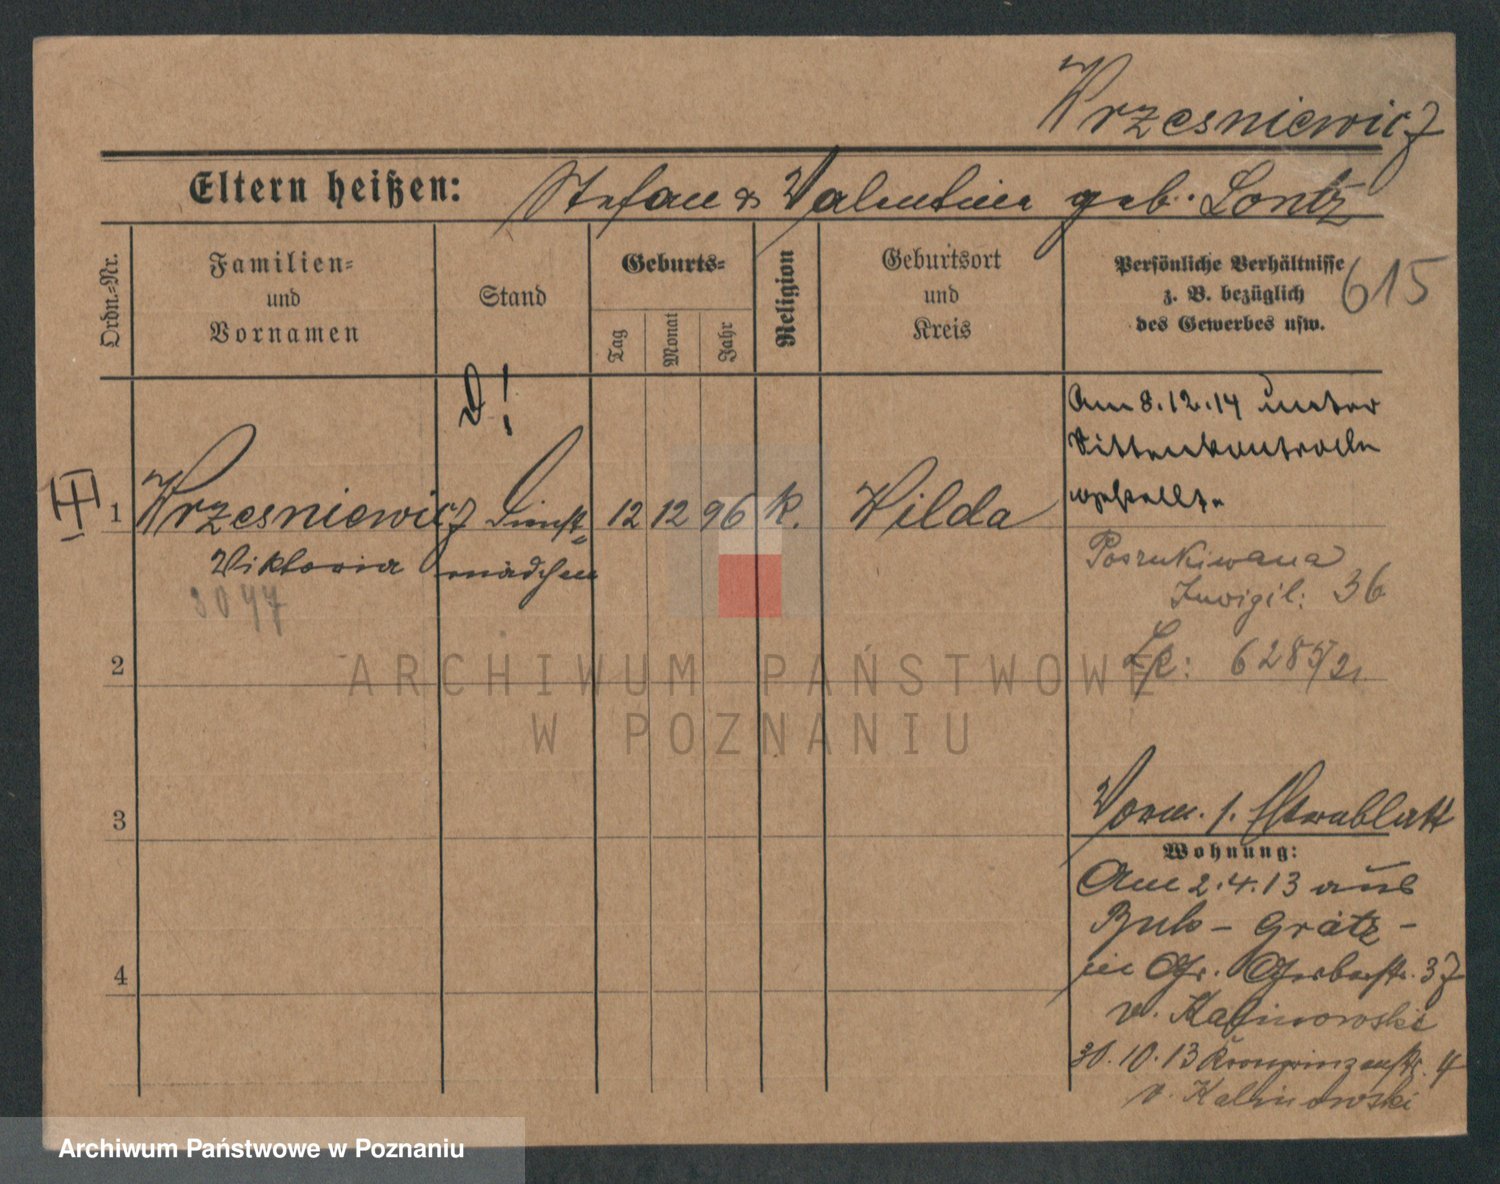 Wrzesniewicz
Eltern heißen: Stefan & Valentine geb. Lontz
Ordn.-Nr.
Familien-
und
Vornamen
Stand
Geburts-
Tag
Monat
Jahr
Religion
Geburtsort
und
Kreis
Persönliche Verhältnisse
z. B. bezüglich
des Gewerbes usw.
615
D!
Am 8.12.14 unter
Sittenkontrolle
gestellt.
1 Wrzesniewicz Dienst- 12 12 96 k. Wilda
Viktoria mädchen
3047
Poszukiwana
Inwigil: 36
6285/21
2
ARCHIWUM PAŃSTWOWE
W POZNANIU
3
Vorm. s. Elternblatt
Wohnung:
Am 2.4.13 aus
Buk - Grätz -
in Gr. Gerberstr. 37
v. Kalinowski
4
31.10.13 Kronprinzenstr. 4
v. Kalinowski
Archiwum Państwowe w Poznaniu